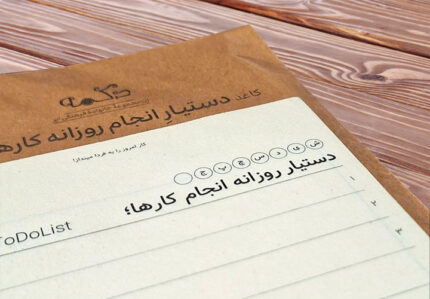 دکمه
کاغذ دستیار انجام روزانه کارها
کار امروز را به فردا میندازا
ش ی د س چ پ ج
دستیار روزانه انجام کارها؛
ToDoList
۱
۲
۳